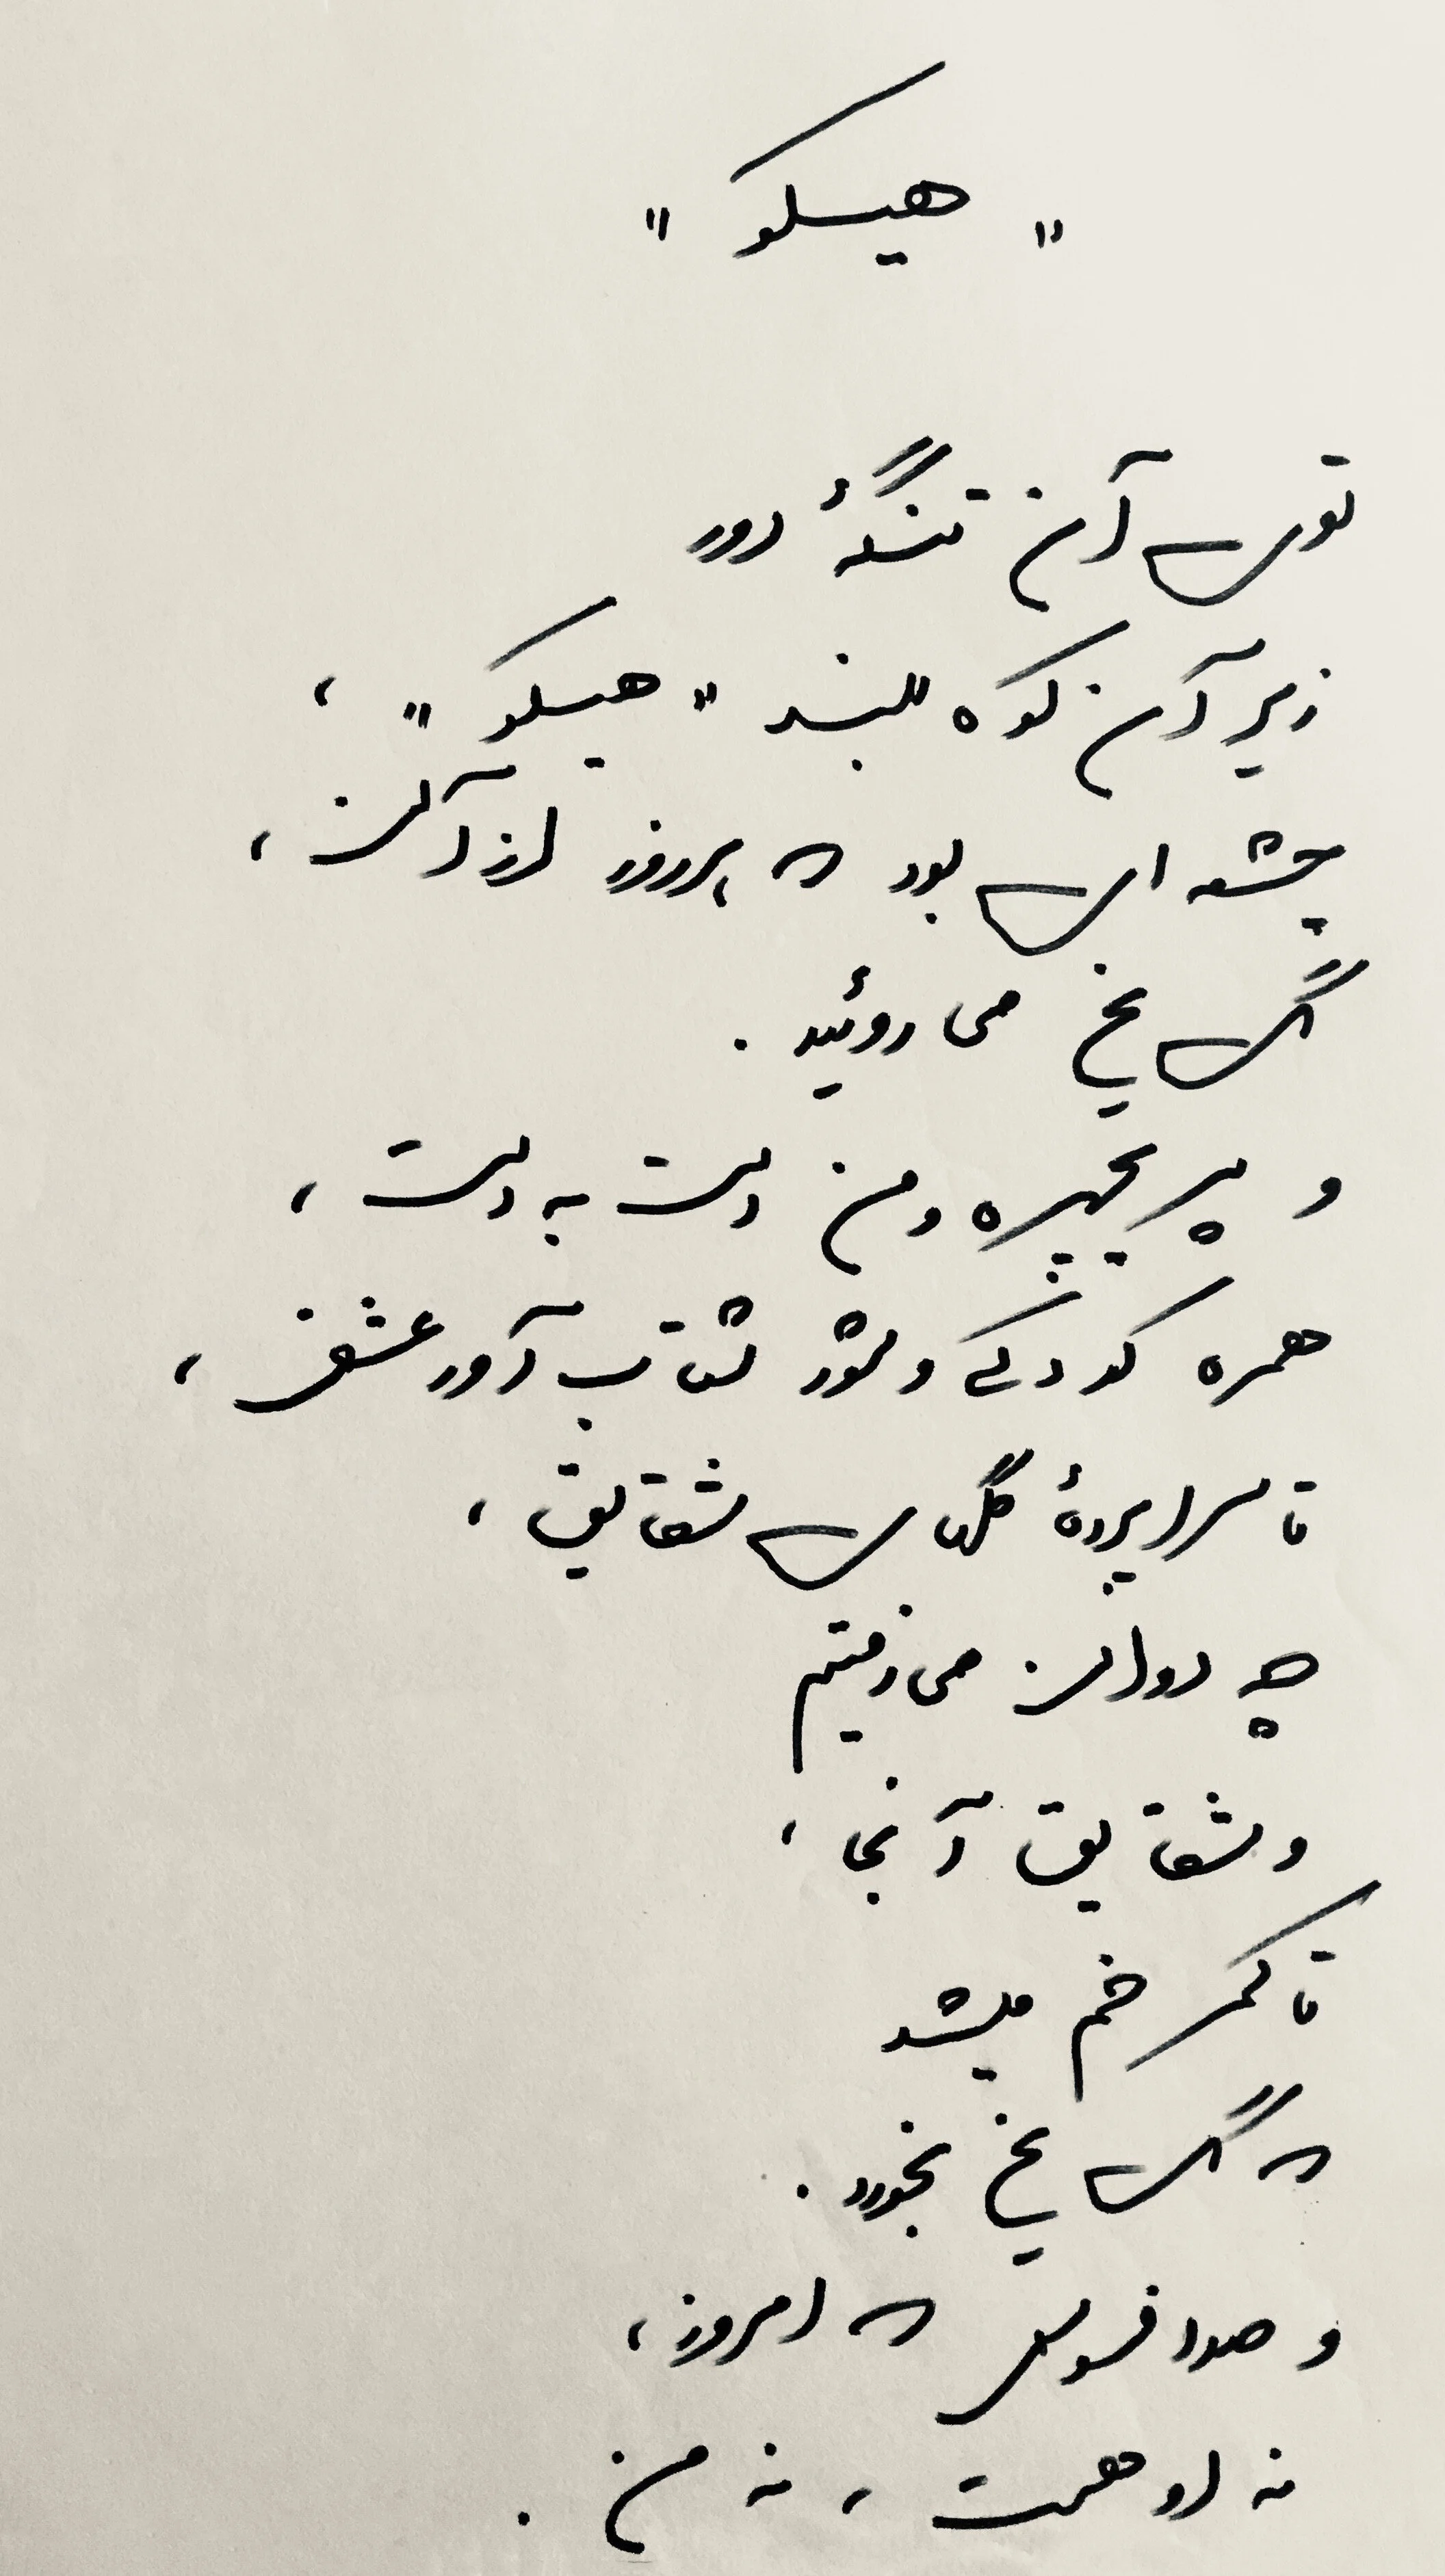 "هیسکو"
توی آن تنگهٔ دور
زیر آن کوه بلند "هیسکو"،
چشمه ای بود که پرروز از آن،
گل یخ می روئید.
و پریچهره و من دست به دست،
همره کودکی و شور شتاب آور عشق،
تا سراپردهٔ گلهای شقایق،
چه دوان می رفتیم
و شقایق آنجا،
تا کمر خم میشد
که گل یخ نخورد.
و صد افسوس که امروز،
نه او هست، نه من.